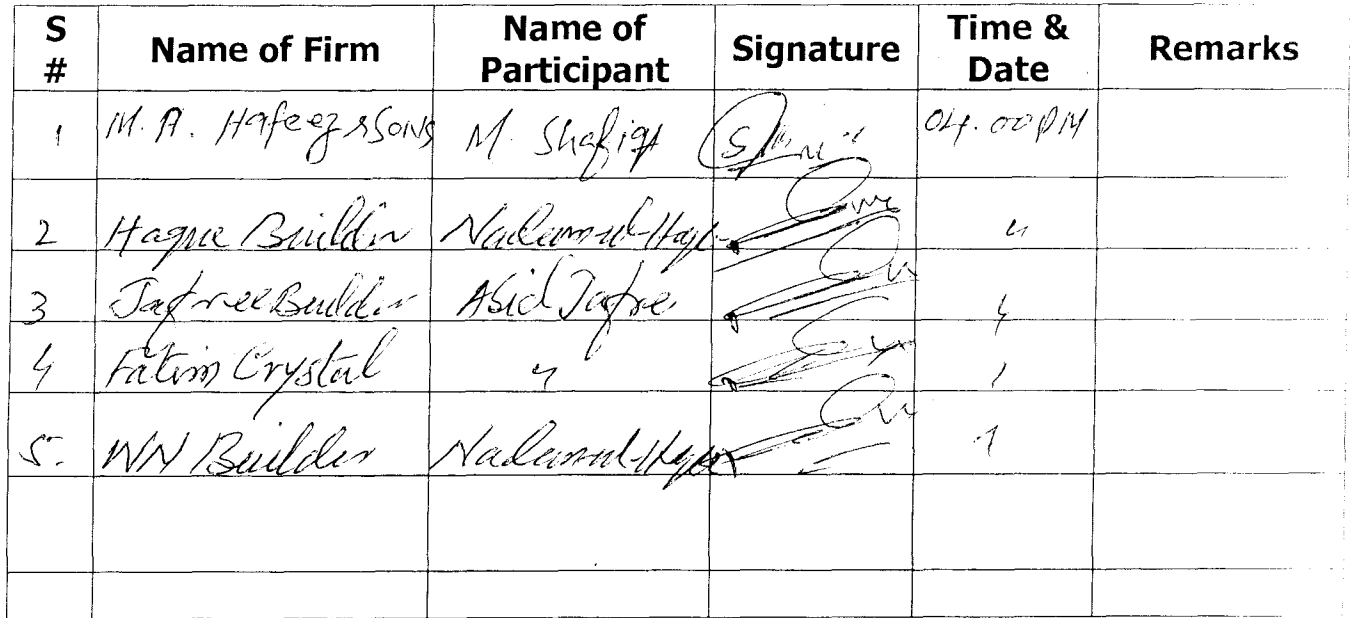 S # Name of Firm Name of Participant Signature Time & Date Remarks
1 M. A. Hafeez & Sons M. Shafiq 04.00 PM
2 Haque Builder Nadeem-ul-Haque "
3 Jafree Builder Abid Jafree "
4 Fatim Crystal " "
5. WN Builder Nadeem-ul-Haque "